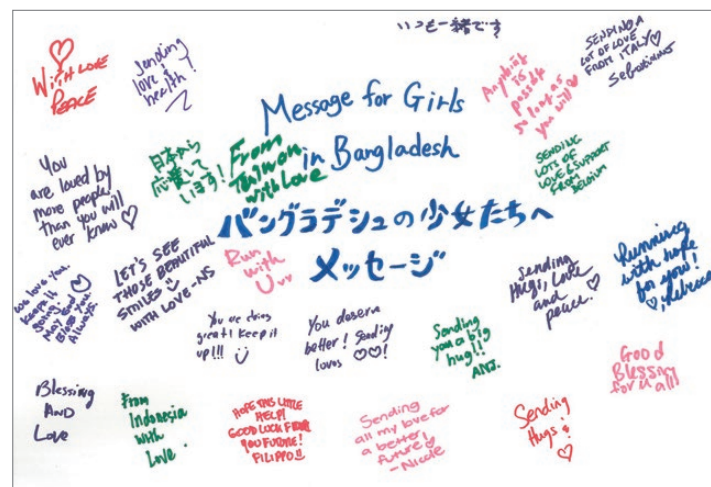 いつも一緒です
WITH LOVE
PEACE
Sending
love &
health!
Message for Girls
in Bangladesh
バングラデシュの少女たちへ
メッセージ
Anything
is
possible
so long as
you will
SENDING A
LOT OF LOVE
FROM ITALY
Sebastiano
You
are loved by
more people
than you will
ever know
日本から
応援して
います!
From
Taiwan
with Love
SENDING
LOTS OF
LOVE & SUPPORT
FROM
BELGIUM
We love you.
Keep it
going!
May God
Bless You
Always.
LET'S SEE
THOSE BEAUTIFUL
SMILES
WITH LOVE -NS
Run
with
U
Sending
Hugs, Love
and
peace.
Running
with hope
for you!
Rebecca
You are doing
great! Keep it
up!!!
You deserve
better! Sending
loves
!
Sending
you a big
hug!!
ANJ.
Good
Blessing
for u all
Blessing
AND
Love
From
Indonesia
with
Love.
HOPE THIS LITTLE
HELP!
GOOD LUCK FOR
YOU FUTURE!
FILIPPO
Sending
all my love for
a better
future!
-Nicole
Sending
Hugs!